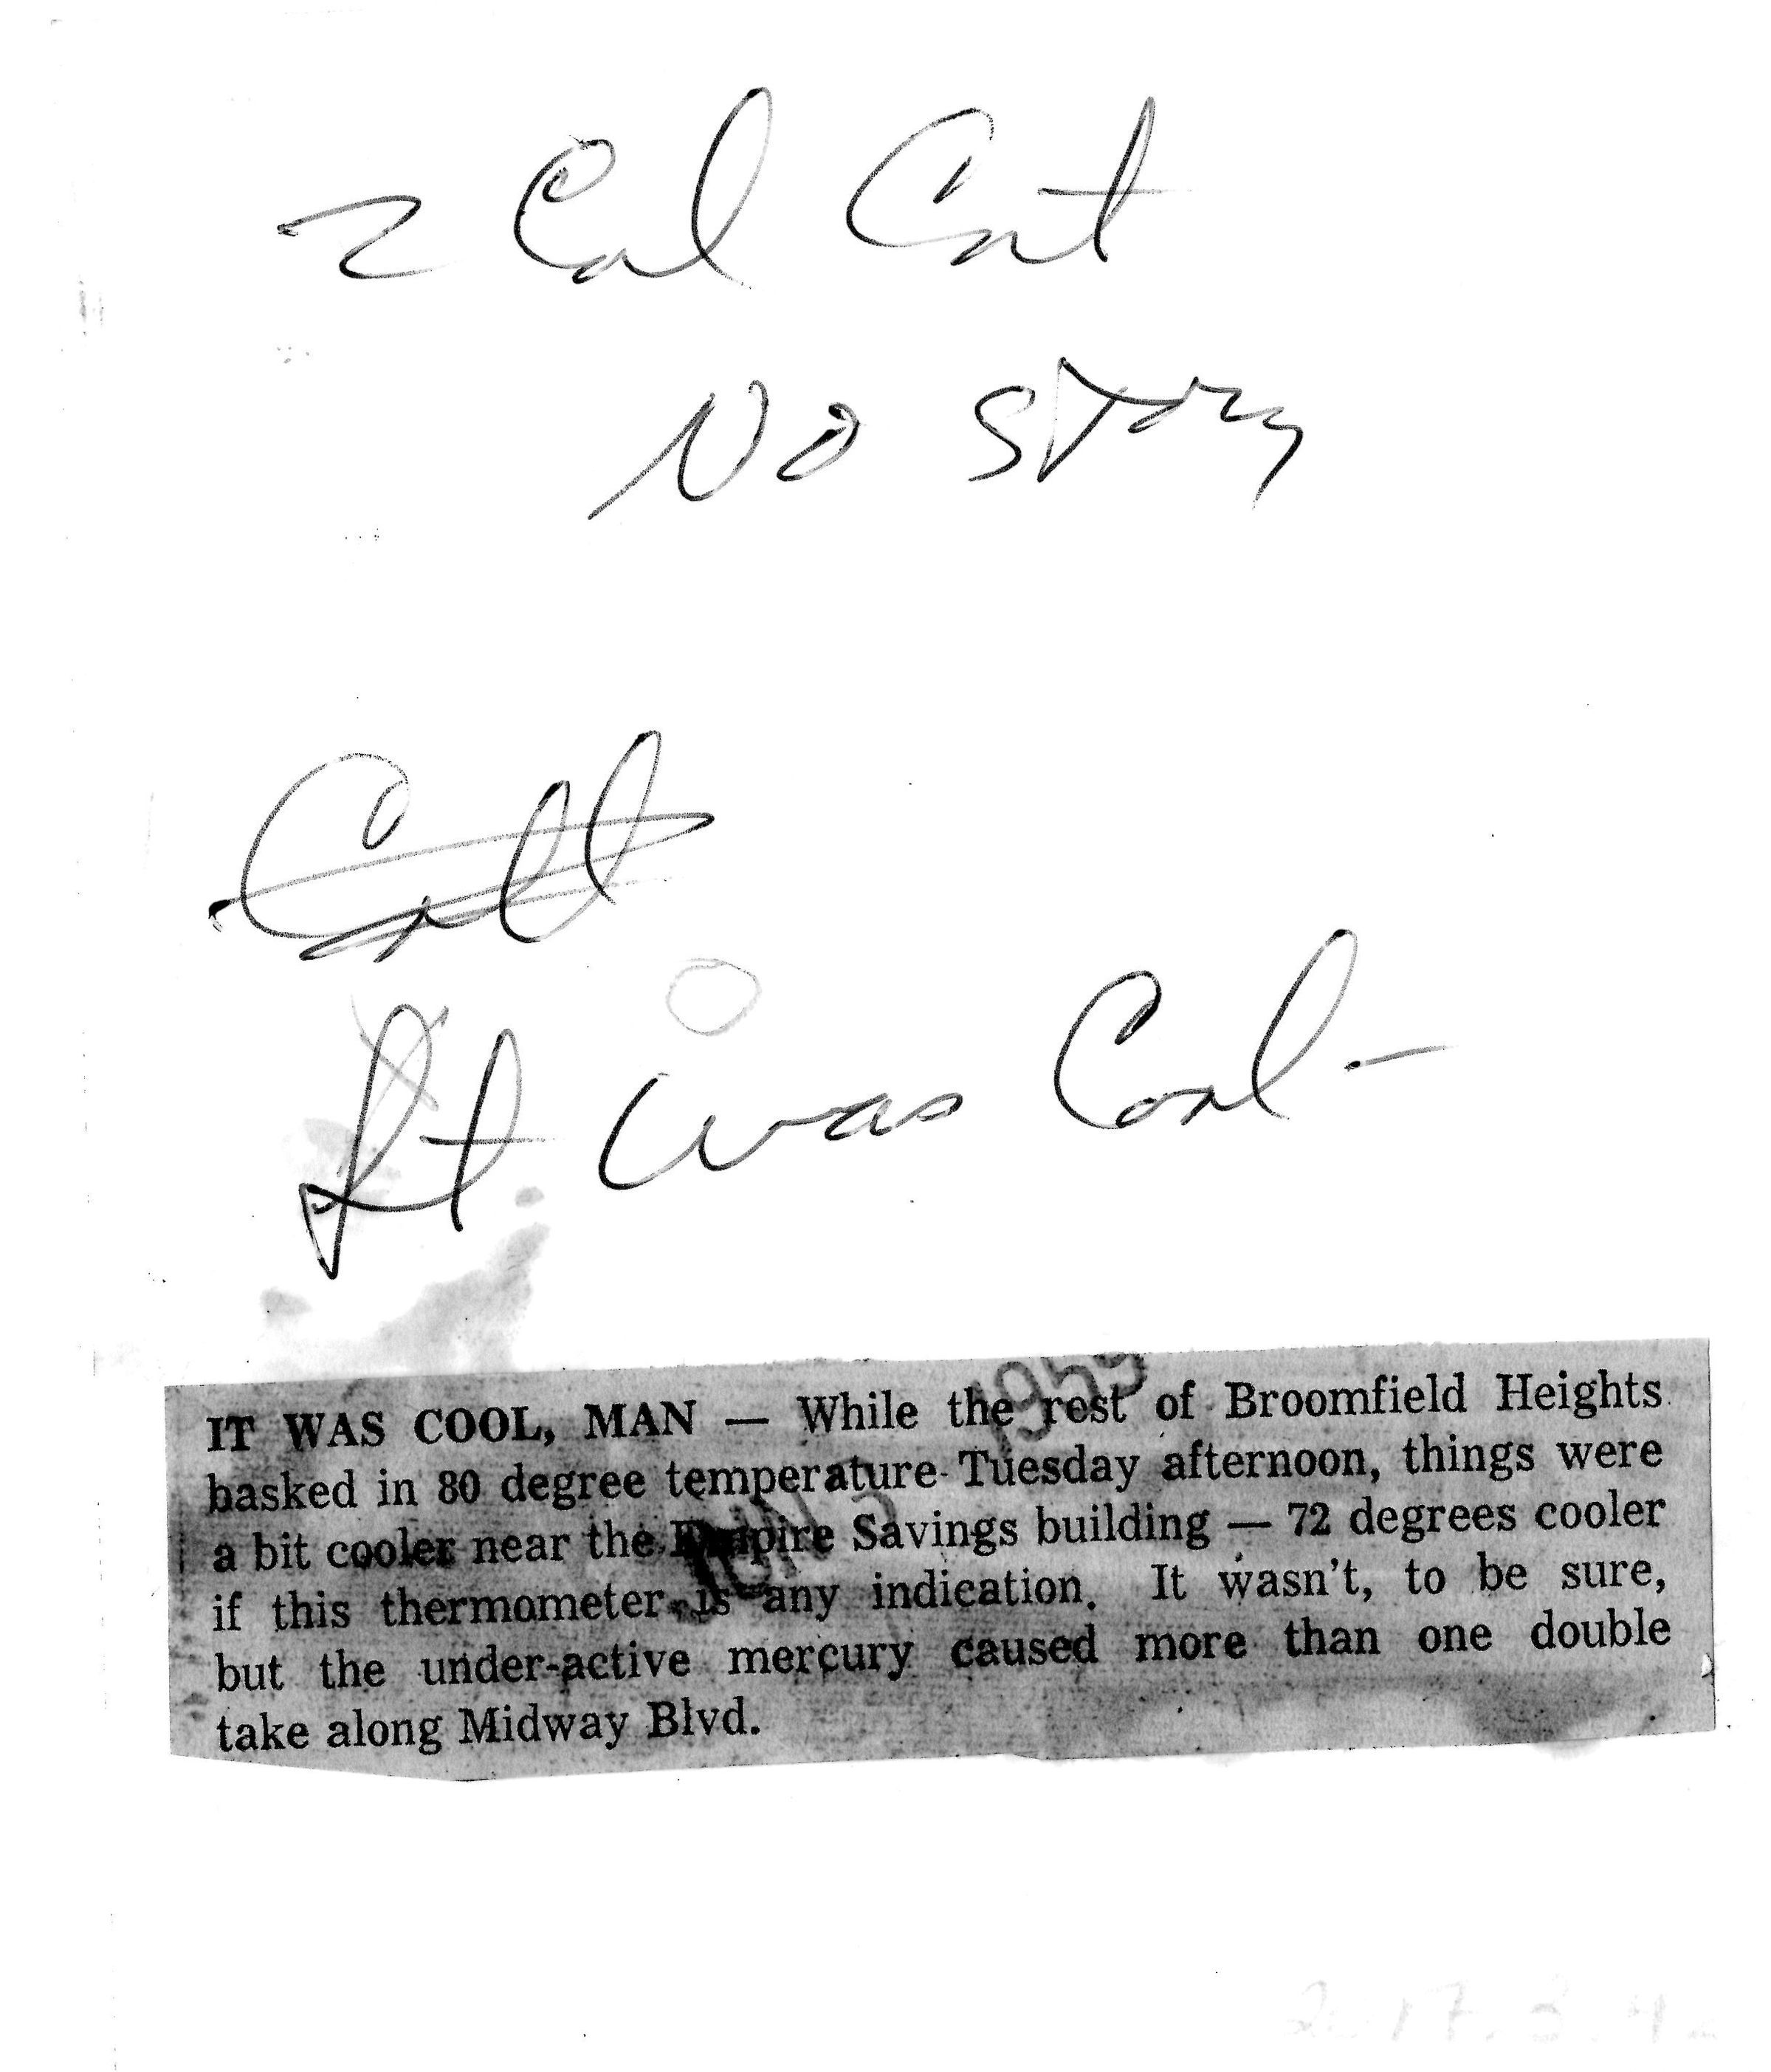 2 Col Cut
No Story
It was Cool —
1959
IT WAS COOL, MAN — While the rest of Broomfield Heights
basked in 80 degree temperature Tuesday afternoon, things were
a bit cooler near the Empire Savings building — 72 degrees cooler
if this thermometer is any indication. It wasn't, to be sure,
but the under-active mercury caused more than one double
take along Midway Blvd.